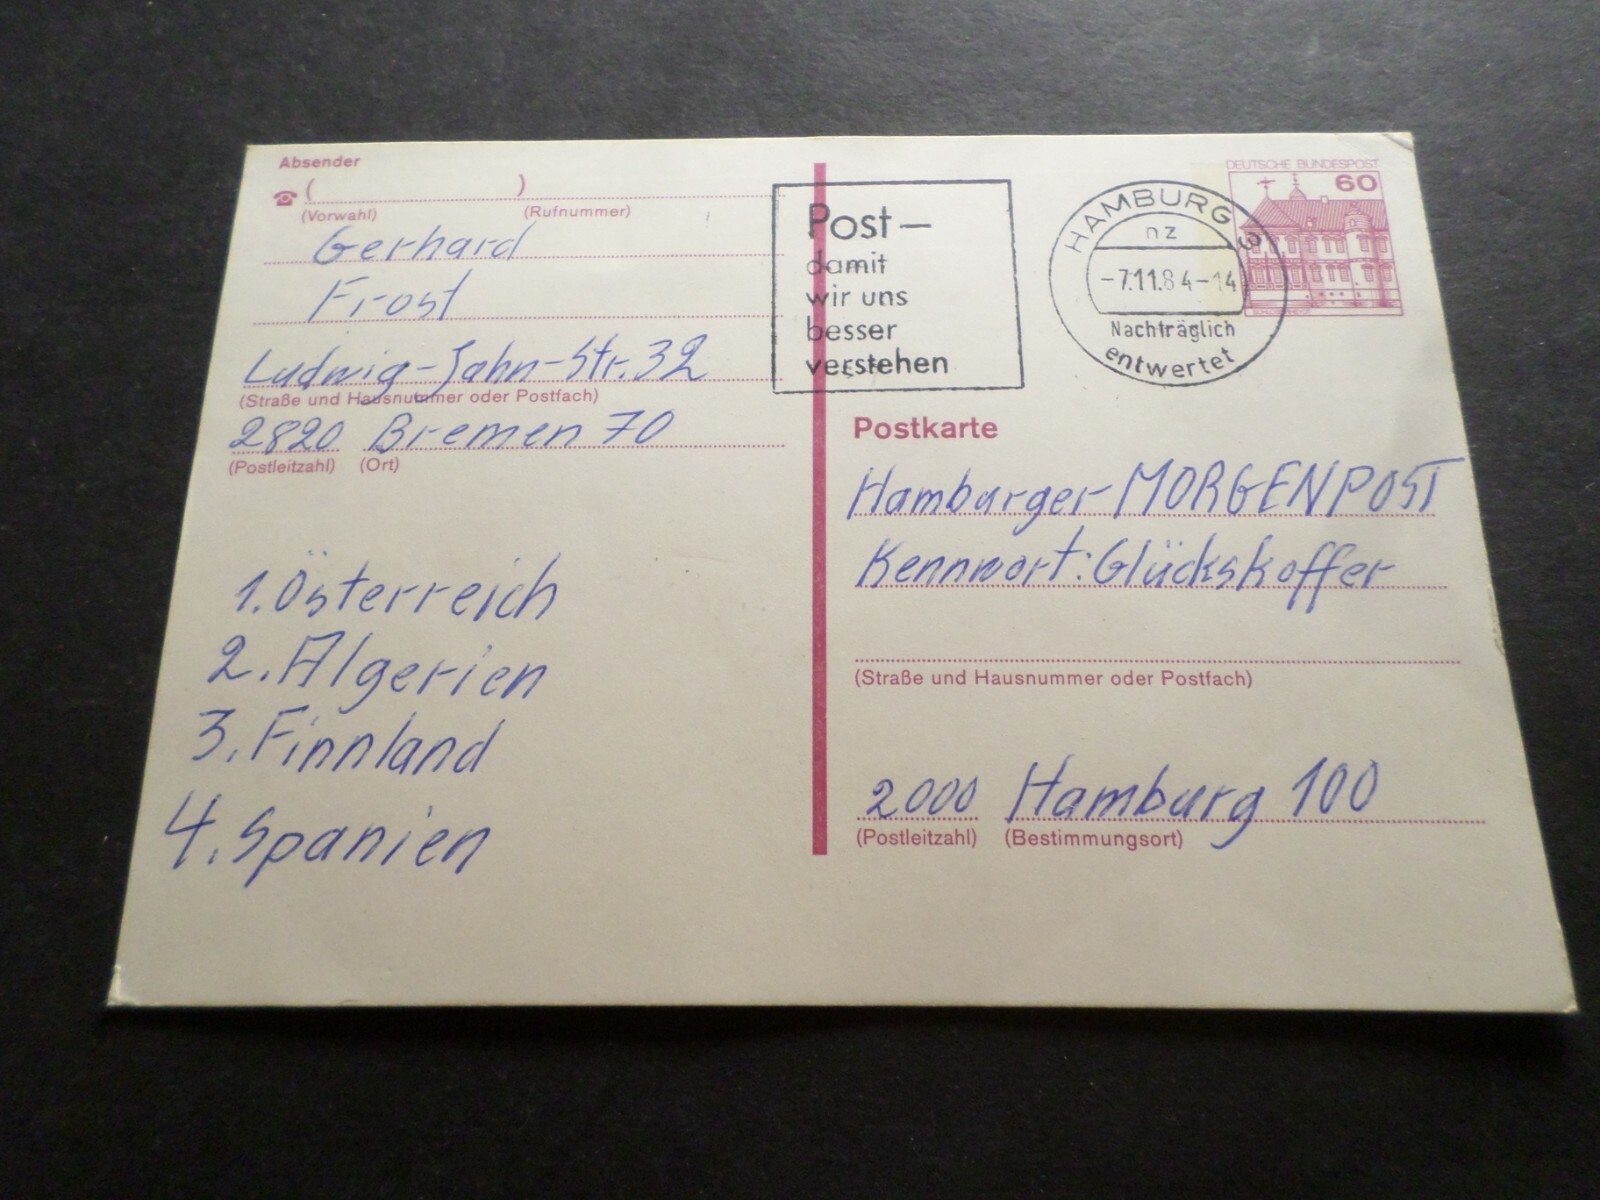 Absender
( )
(Vorwahl) (Rufnummer)
Gerhard
Frost
Ludwig-Jahn-Str. 32
(Straße und Hausnummer oder Postfach)
2820 Bremen 70
(Postleitzahl) (Ort)
1. Österreich
2. Algerien
3. Finnland
4. Spanien
Post –
damit
wir uns
besser
verstehen
HAMBURG 3
nz
-7.11.84-14
Nachträglich
entwertet
DEUTSCHE BUNDESPOST
60
Postkarte
Hamburger MORGENPOST
Kennwort: Glückskoffer
(Straße und Hausnummer oder Postfach)
2000 Hamburg 100
(Postleitzahl) (Bestimmungsort)